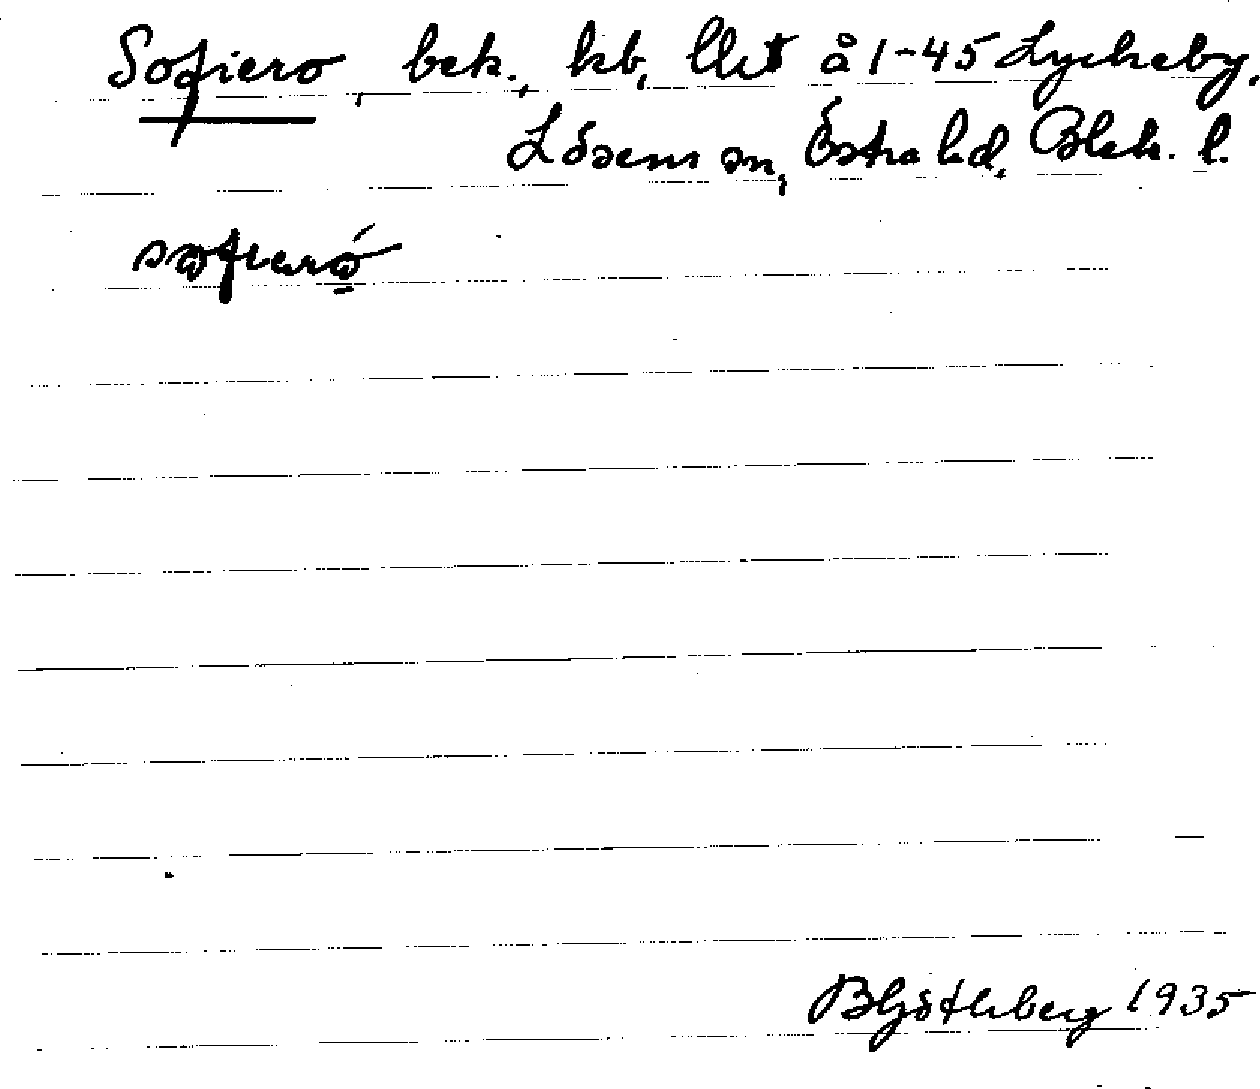 Sofiero, bek., kb, llt å 1-45 Lyckeby,
Lösens sn, Östra hd, Blek. l.
sofieró
B Götlaberg 1935